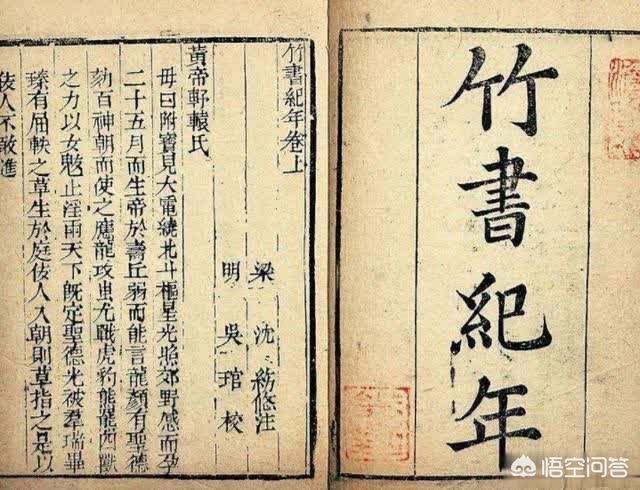 竹書紀年
竹書紀年卷上
梁 沈約附注
明 吳琯校
黃帝軒轅氏
母曰附寶見大電繞北斗樞星光照郊野感而孕
二十五月而生帝於壽丘弱而能言龍顏有聖德
劾百神朝而使之應龍攻蚩尤戰虎豹熊羆四獸
之力以女魃止淫雨天下既定聖德光被群瑞畢
臻有屈軼之草生於庭佞人入朝則草指之是以
佞人不敢進
悟空问答